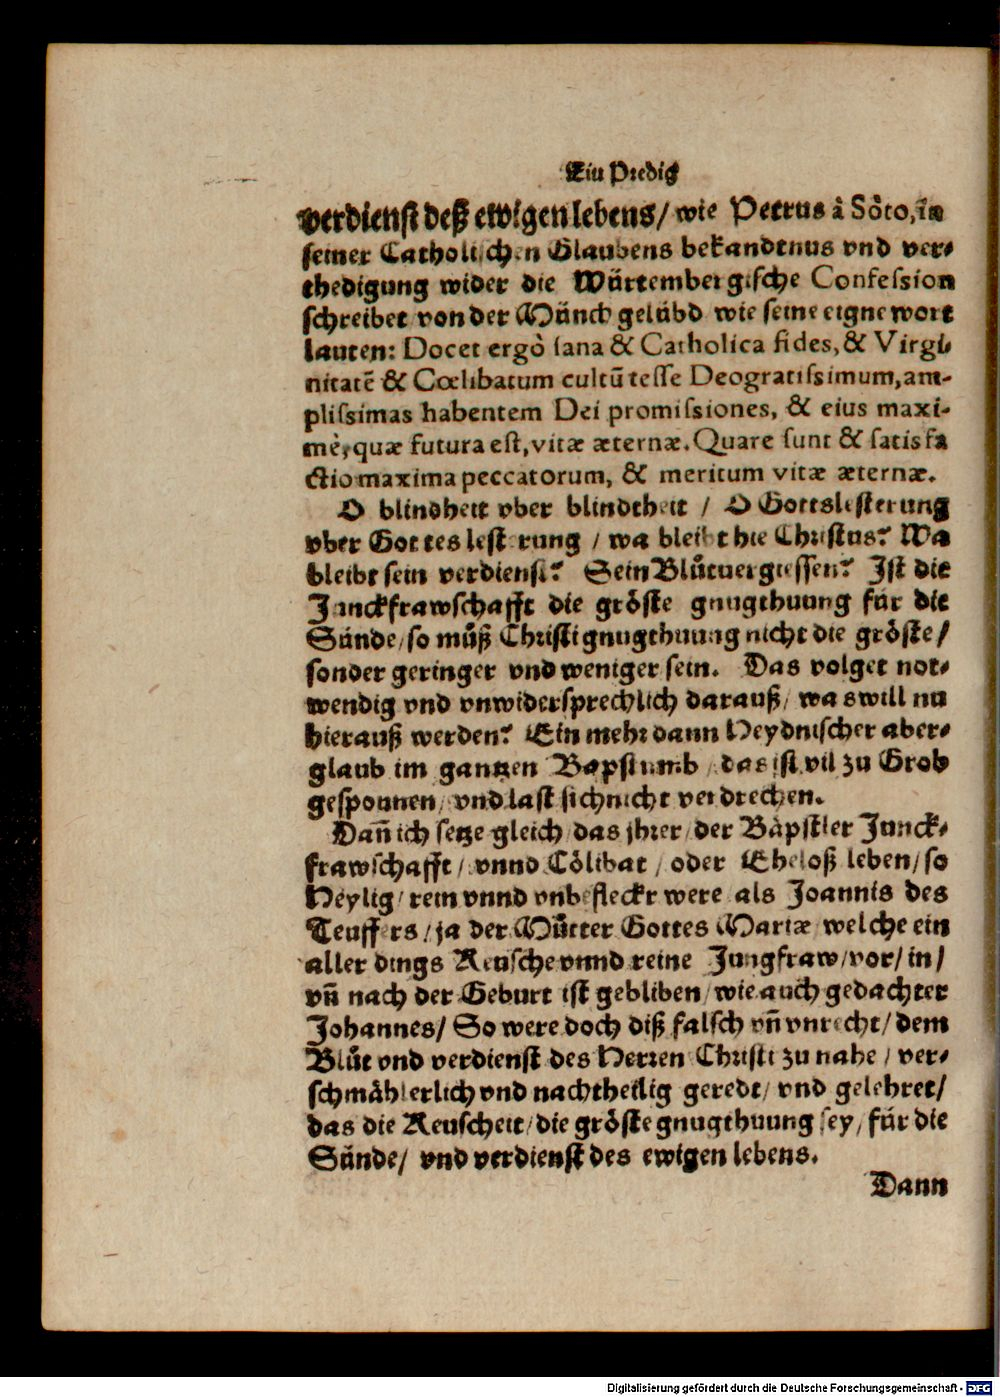 Ein Predig
verdienst deß ewigen lebens/ wie Petrus à Sòto, in
seiner Catholischen Glaubens bekandtnus vnd ver⸗
thedigung wider die Würtembergische Confession
schreibet von der Münch gelübd wie seine eigne wort
lauten: Docet ergò sana & Catholica fides, & Virgi-
nitatē & Cœlibatum cultū esse Deo gratissimum, am-
plissimas habentem Dei promissiones, & eius maxi-
mè, quæ futura est, vitæ æternæ. Quare sunt & satisfa
ctio maxima peccatorum, & meritum vitæ æternæ.
O blindheit vber blindtheit / O Gottslesterung
vber Gottes lesterung / wa bleibt hie Christus? Wa
bleibt sein verdienst? Sein Blůtuergiessen? Ist die
Junckfrawschafft die gröste gnugthuung für die
Sünde/ so můß Christi gnugthuung nicht die gröste/
sonder geringer vnd weniger sein. Das volget not⸗
wendig vnd vnwidersprechlich darauß/ was will nu
hierauß werden? Ein mehr dann Heydnischer aber⸗
glaub im gantzen Bapstumb / das ist vil zu Grob
gesponnen/ vnd last sich nicht verdrechen.
Dañ ich setze gleich das jhrer/ der Bäpstler Junck⸗
frawschafft/ vnnd Cölibat / oder Eheloß leben/ so
Heylig/ rein vnnd vnbefleckt were als Joannis des
Teuffers/ ja der Můtter Gottes Mariæ welche ein
aller dings Keusche vnnd reine Jungfraw/ vor/ in/
vñ nach der Geburt ist gebliben/ wie auch gedachter
Johannes/ So were doch diß falsch vñ vnrecht/ dem
Blůt vnd verdienst des Herren Christi zu nahe / ver⸗
schmählerlich vnd nachtheilig geredt/ vnd gelehret/
das die Keuscheit/ die gröste gnugthuung sey/ für die
Sünde/ vnd verdienst des ewigen lebens.
Dann
Digitalisierung gefördert durch die Deutsche Forschungsgemeinschaft - DFG